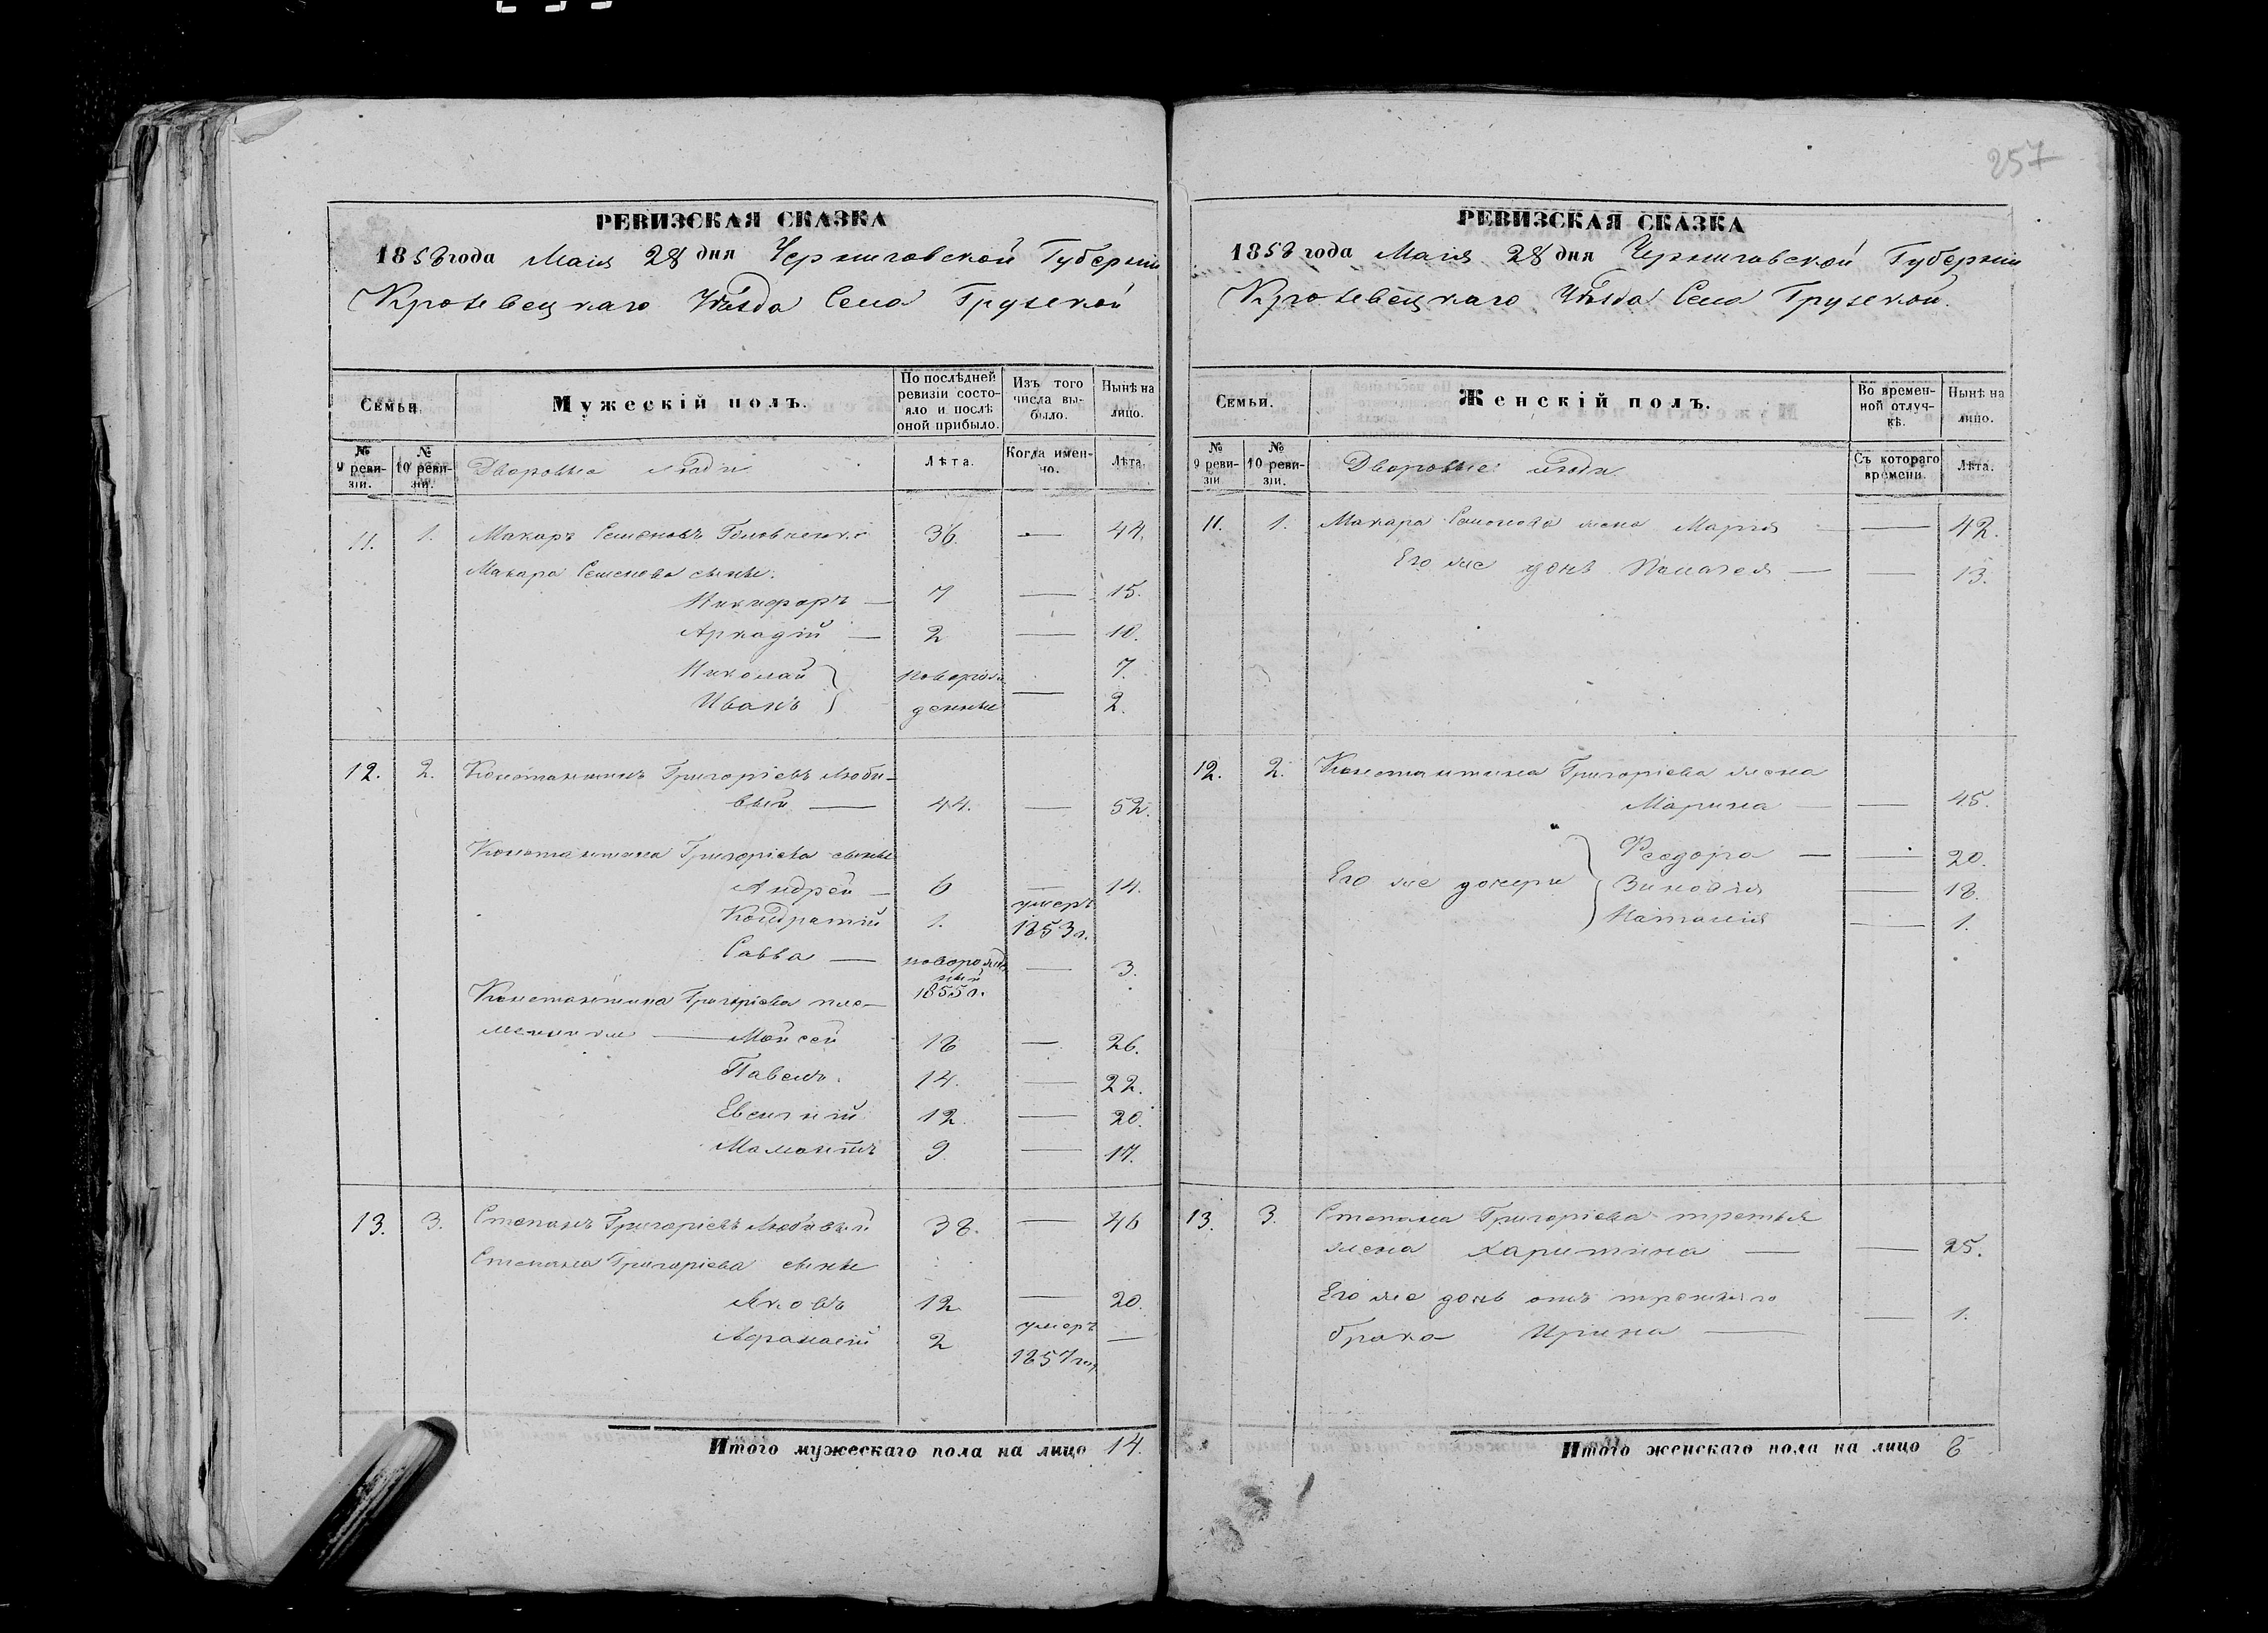 257
РЕВИЗСКАЯ СКАЗКА
1858 года Маія 28 дня Черниговской Губерніи
Кролевецкаго Уѣзда Села Грузской
Семьи.
Мужескій полъ.
По послѣдней ревизіи состояло и послѣ оной прибыло.
Изъ того числа выбыло.
Нынѣ на лицо.
№ 9 ревизіи.
№ 10 ревизіи.
Дворовые люди
Лѣта.
Когда именно.
Лѣта.
11. 1. Макаръ Семеновъ 36 — 44.
Макара Семенова сыны:
Никифоръ — 7 — 15.
Аркадій — 2 — 10.
Николай } новорож 7.
Иванъ } денные — 2.
12. 2. Константинъ Григорьевъ Люби-
вый — 44. — 52.
Константина Григорьева сыны
Андрей — 6 — 14.
Кондратій 1. умеръ 1853 г.
Савва — новорожденный 1855 г. — 3.
Константина Григорьева пле-
менники — Мойсей 18 — 26.
Павелъ. 14. — 22.
Евгеній 12. — 20.
Мамонтъ 9. — 17.
13. 3. Степанъ Григорьевъ Любивый 38. — 46
Степана Григорьева сыны
Яковъ 12 — 20.
Афанасій 2 умеръ 1857 год —
Итого мужескаго пола на лицо 14.
РЕВИЗСКАЯ СКАЗКА
1858 года Маія 28 дня Черниговской Губерніи
Кролевецкаго Уѣзда Села Грузской.
Семьи.
Женскій полъ.
Во временной отлучкѣ.
Нынѣ на лицо.
№ 9 ревизіи
№ 10 ревизіи.
Дворовые люди
Съ котораго времени.
Лѣта.
11. 1. Макара Семенова жена Марія — 42.
Его же дочь Пелагея — — 13.
12. 2. Константина Григорьева жена
Марина — — 45.
Его же дочери } Феодора — — 20.
Зиновія — 18.
Наталія — 1.
13. 3. Степана Григорьева третья
жена Харитина — — 25.
Его же дочь отъ третьяго
брака Ирина — — 1.
Итого женскаго пола на лицо 8